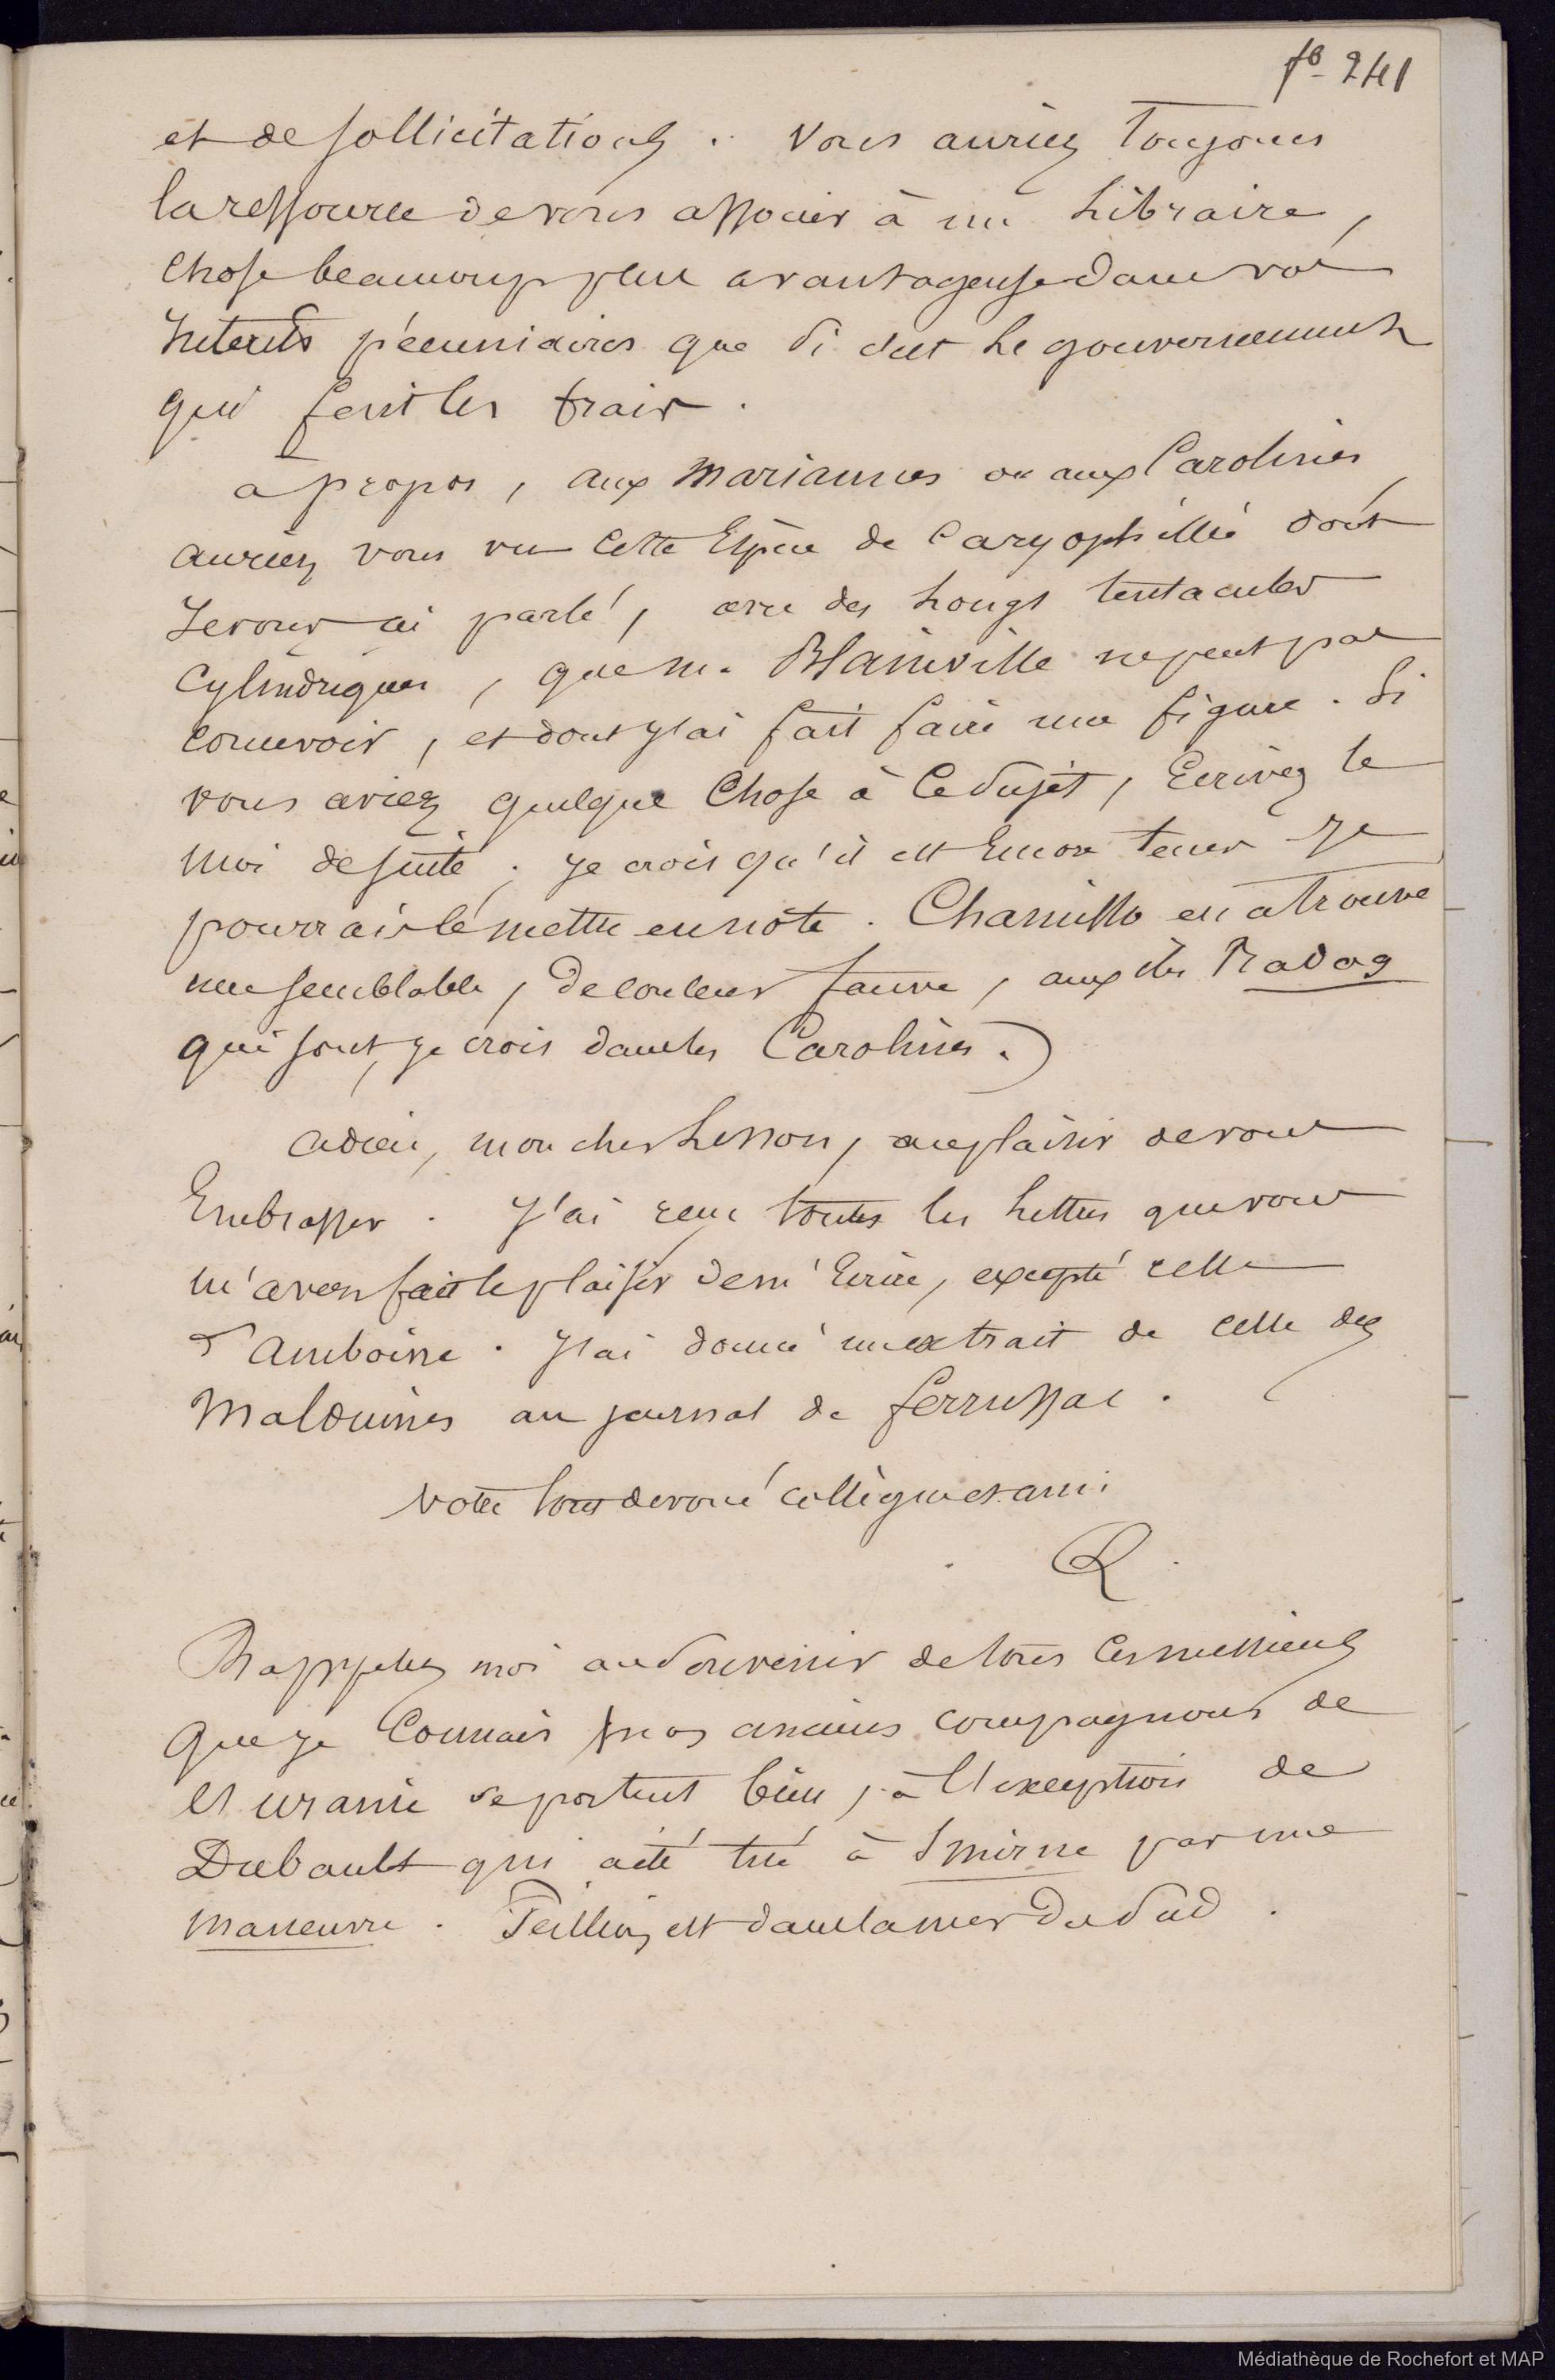 fo 241
et de sollicitations. Vous auriez Toujours
la ressource de vous associer à un Libraire,
Chose beaucoup plus avantageuse dans vos
Interêts pécuniaires que si c'est Le gouvernement
qui fesait les frais.
a propos, aux Mariannes ou aux Carolines
auriez vous vu Cette Espèce de Caryophillie dont
Je vous ai parlé, avec des Longs tentacules
Cylindriques, que M. Blainville ne peut pas
concevoir, et dont J'ai fait faire une figure. Si
vous aviez quelque Chose à Ce sujet, Ecrivez le
Moi de suite; Je crois qu'il est Encore tems Je
pourrais le mettre en note. Chamisso en a Trouvé
une semblable, de couleur fauve, aux îles Radag
qui sont, Je crois dans les Carolines.)
adieu, mon cher Lesson, au plaisir de vous
Embrasser. J'ai reçu toutes les Lettres que vous
m'avez fait le plaisir de m'Ecrire, excepté celle
d'Amboine. J'ai donné un extrait de celle des
Malouines au journal de ferrussac.
Votre tout devoué collègue et ami
Q.
Rappelez moi au souvenir de tous Ces messieurs
que Je Connais nos anciens compagnons de
L'uranie se portent bien, à L'exception de
Dubault qui a été tué à Smirne par une
Maneuvre. est dans la mer du Sud.
Médiathèque de Rochefort et MAP